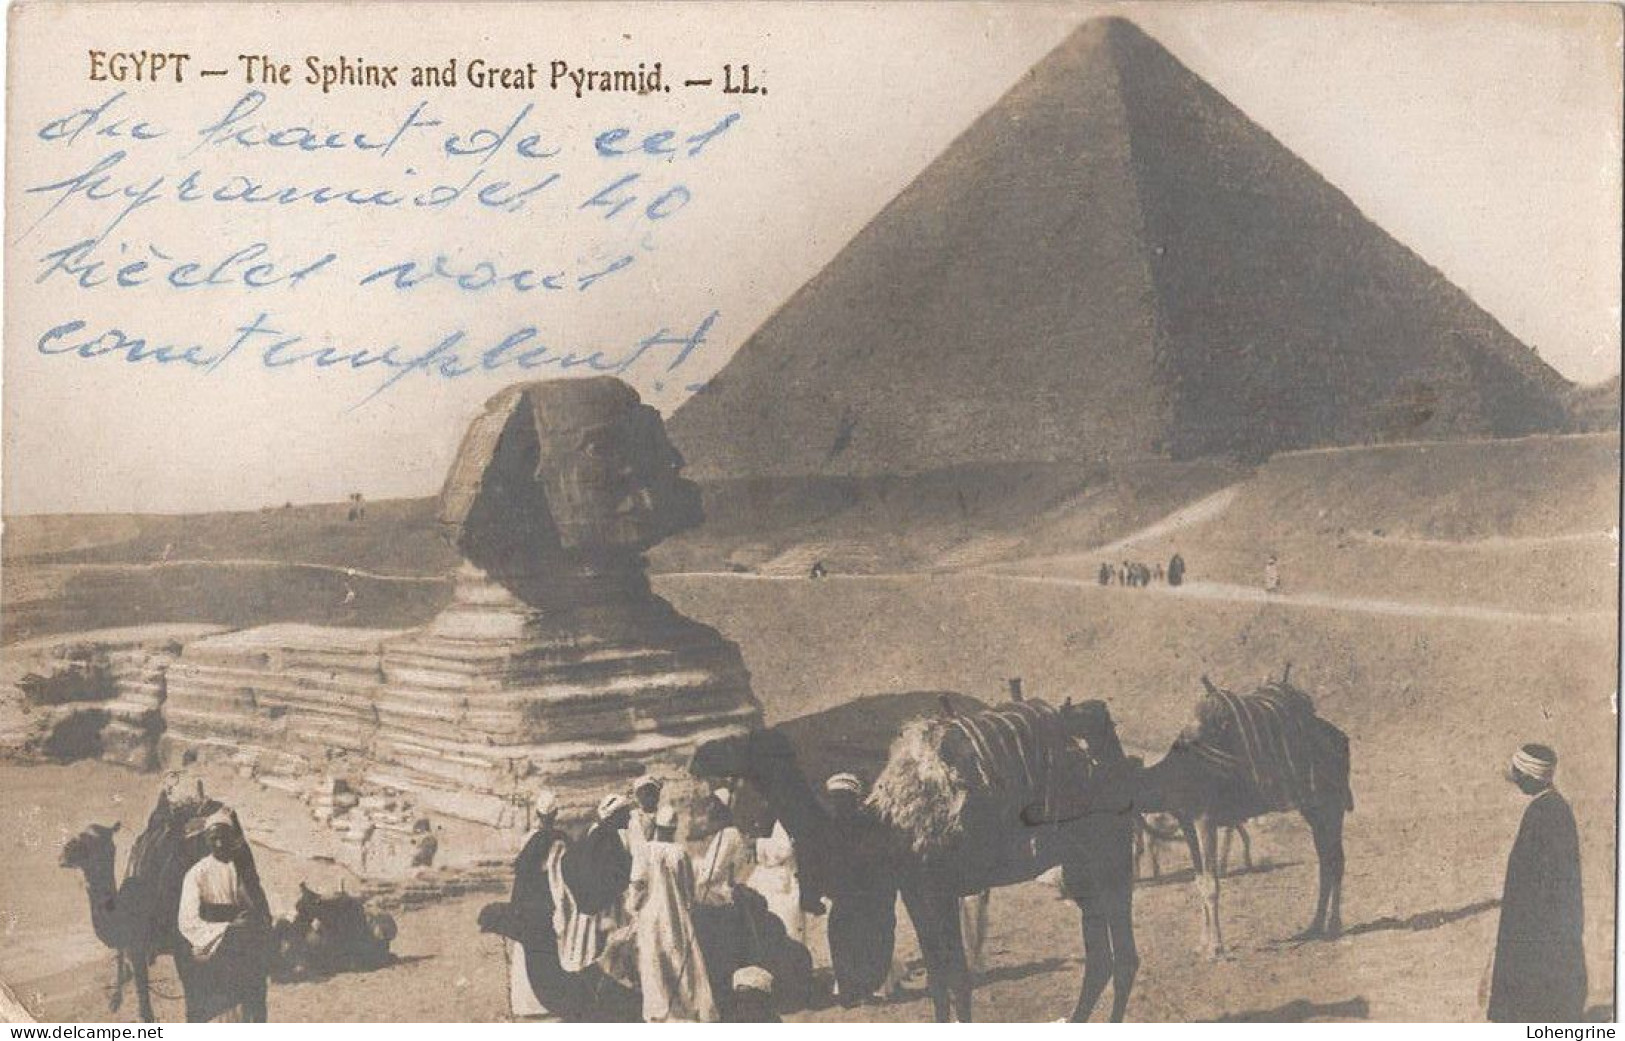 EGYPT — The Sphinx and Great Pyramid. — LL.
du haut de ces
pyramides 40
siècles vous
contemplent!
Lohengrine